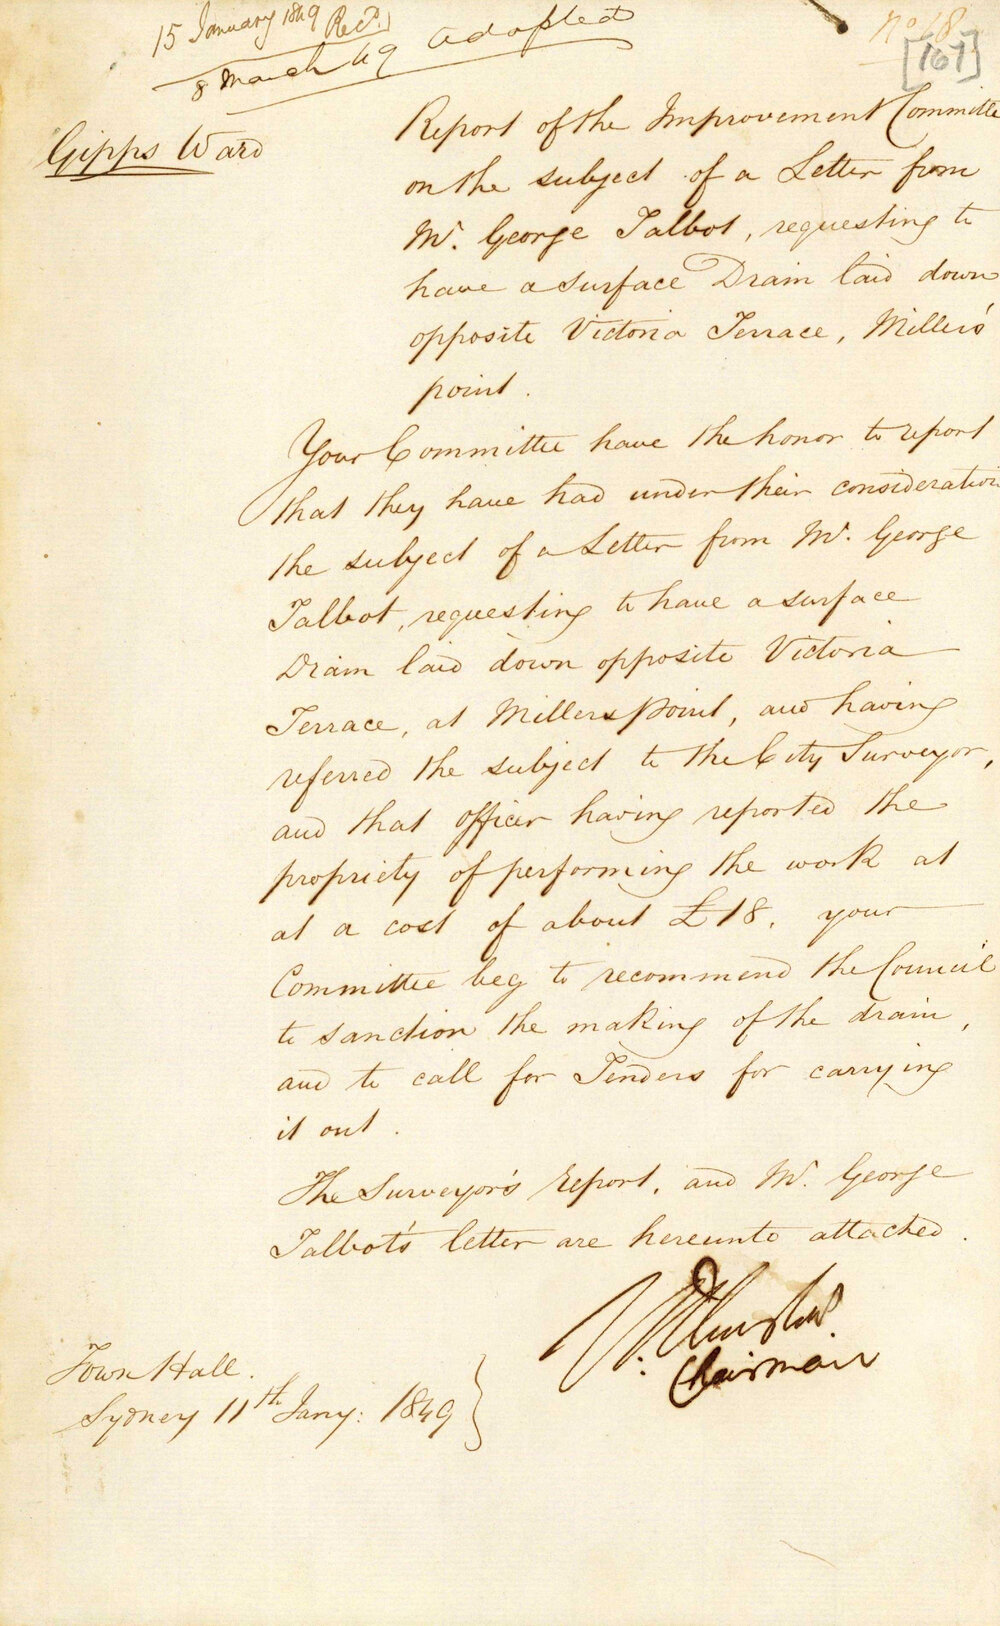 15 January 1849 Recd.
8 March 49 adopted
No 18
[167]
Gipps Ward
Report of the Improvement Committee
on the subject of a Letter from
Mr. George Talbot, requesting to
have a surface Drain laid down
opposite Victoria Terrace, Miller's
point.
Your Committee have the honor to report
that they have had under their consideration
the subject of a Letter from Mr. George
Talbot, requesting to have a surface
Drain laid down opposite Victoria
Terrace, at Millers Point, and having
referred the subject to the City Surveyor,
and that officer having reported the
propriety of performing the work at
at a cost of about £18. your
Committee beg to recommend the Council
to sanction the making of the drain,
and to call for Tenders for carrying
it out.
The Surveyor's report, and Mr. George
Talbot's letter are hereunto attached.
Chairman
Town Hall.
Sydney 11th Jany: 1849